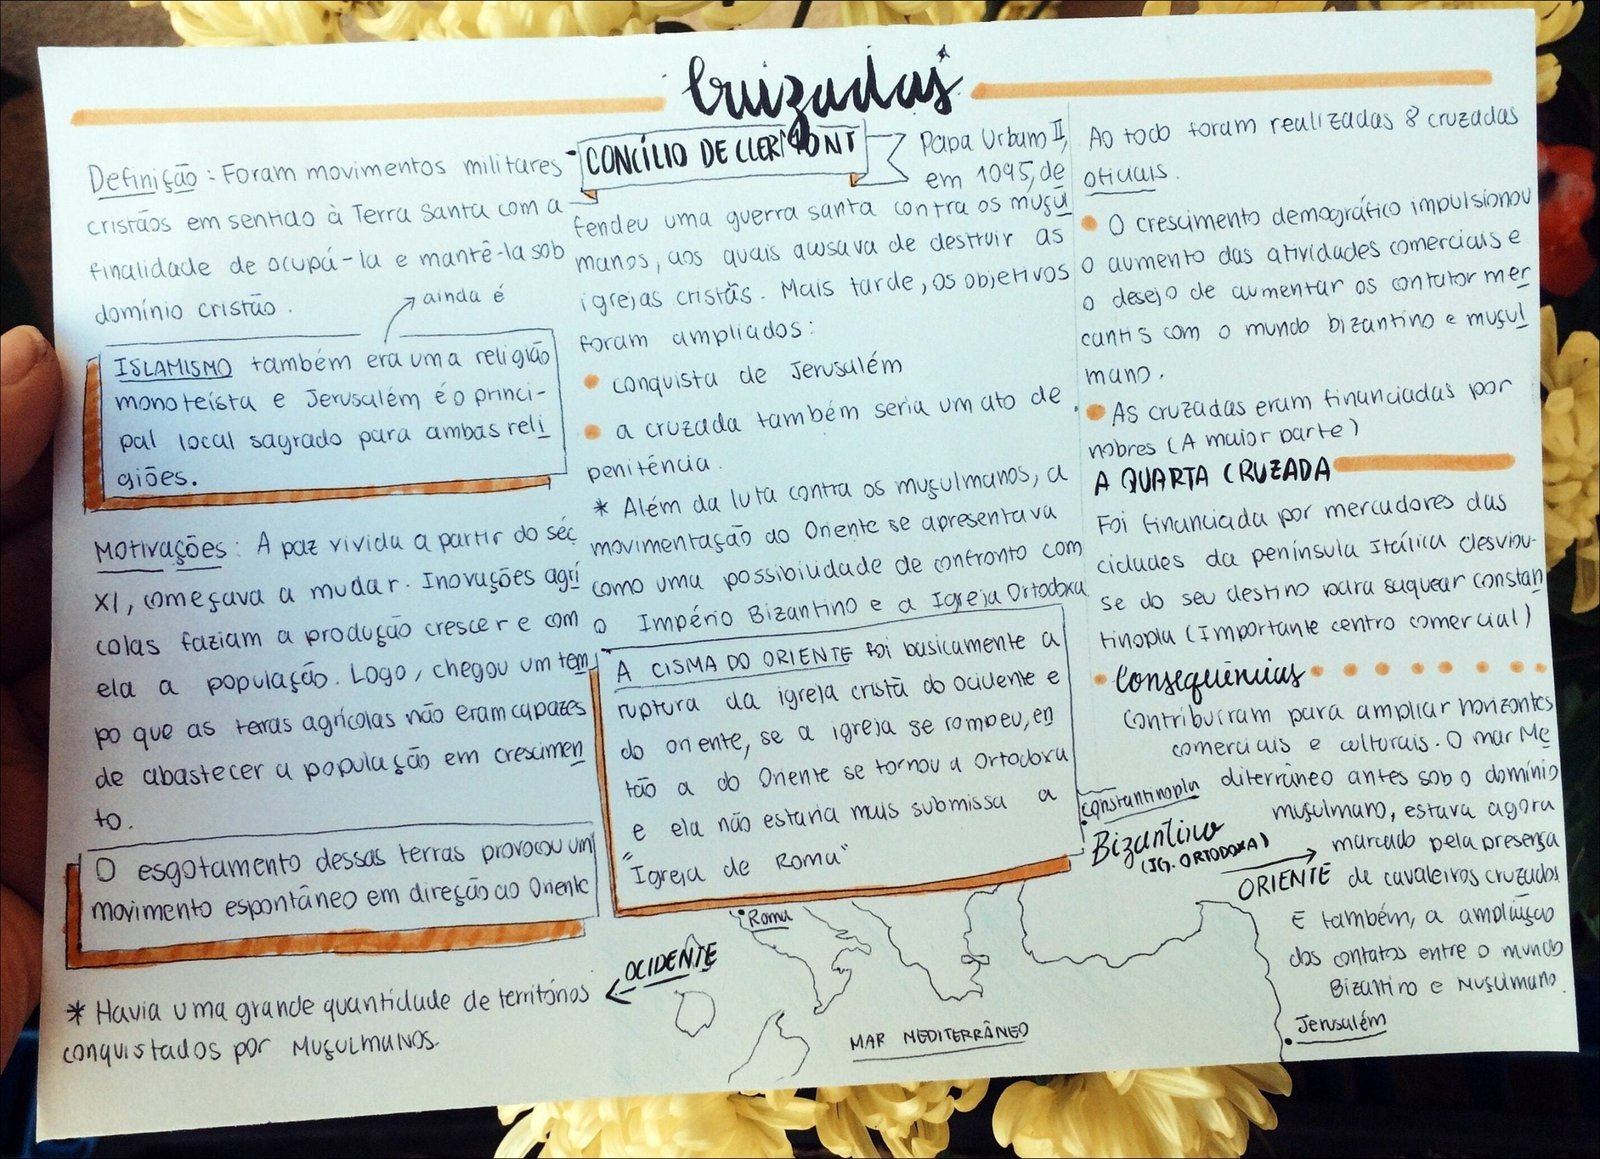 Cruzadas
Definição: Foram movimentos militares
cristãos em sentido à Terra Santa com a
finalidade de ocupá-la e mantê-la sob
domínio cristão.
ainda é
ISLAMISMO também era uma religião
monoteísta e Jerusalém é o princi-
pal local sagrado para ambas reli
giões.
Motivações: A paz vivida a partir do séc
XI, começava a mudar. Inovações agrí
colas faziam a produção crescer e com
ela a população. Logo, chegou um tem
po que as terras agrícolas não eram capazes
de abastecer a população em crescimen
to.
O esgotamento dessas terras provocou um
movimento espontâneo em direção ao Oriente
* Havia uma grande quantidade de territórios
conquistados por Muçulmanos.
CONCÍLIO DE CLERMONT
Papa Urbano II,
em 1095, de
fendeu uma guerra santa contra os muçul
manos, aos quais acusava de destruir as
igrejas cristãs. Mais tarde, os objetivos
foram ampliados:
• conquista de Jerusalém
• a cruzada também seria um ato de
penitência.
* Além da luta contra os muçulmanos, a
movimentação ao Oriente se apresentava
como uma possibilidade de confronto com
o Império Bizantino e a Igreja Ortodoxa
A CISMA DO ORIENTE foi basicamente a
ruptura da igreja cristã do ocidente e
do oriente, se a igreja se rompeu, en
tão a do Oriente se tornou a Ortodoxa
e ela não estaria mais submissa a
"Igreja de Roma"
Ao todo foram realizadas 8 cruzadas
oficiais.
• O crescimento demográfico impulsionou
o aumento das atividades comerciais e
o desejo de aumentar os contator mer
cantis com o mundo bizantino e muçul
mano.
• As cruzadas eram financiadas por
nobres (A maior parte)
A QUARTA CRUZADA
Foi financiada por mercadores das
cidades da península Itálica desviou-
se do seu destino para saquear constan
tinopla (Importante centro comercial)
• Consequências
Contribuíram para ampliar horizontes
comerciais e culturais. O mar Me
diterrâneo antes sob o domínio
muçulmano, estava agora
marcado pela presença
de cavaleiros cruzados
E também, a ampliação
dos contatos entre o mundo
Bizantino e Muçulmano.
Constantinopla
Bizantino
(IG. ORTODOXA)
ORIENTE
Roma
OCIDENTE
MAR MEDITERRÂNEO
Jerusalém